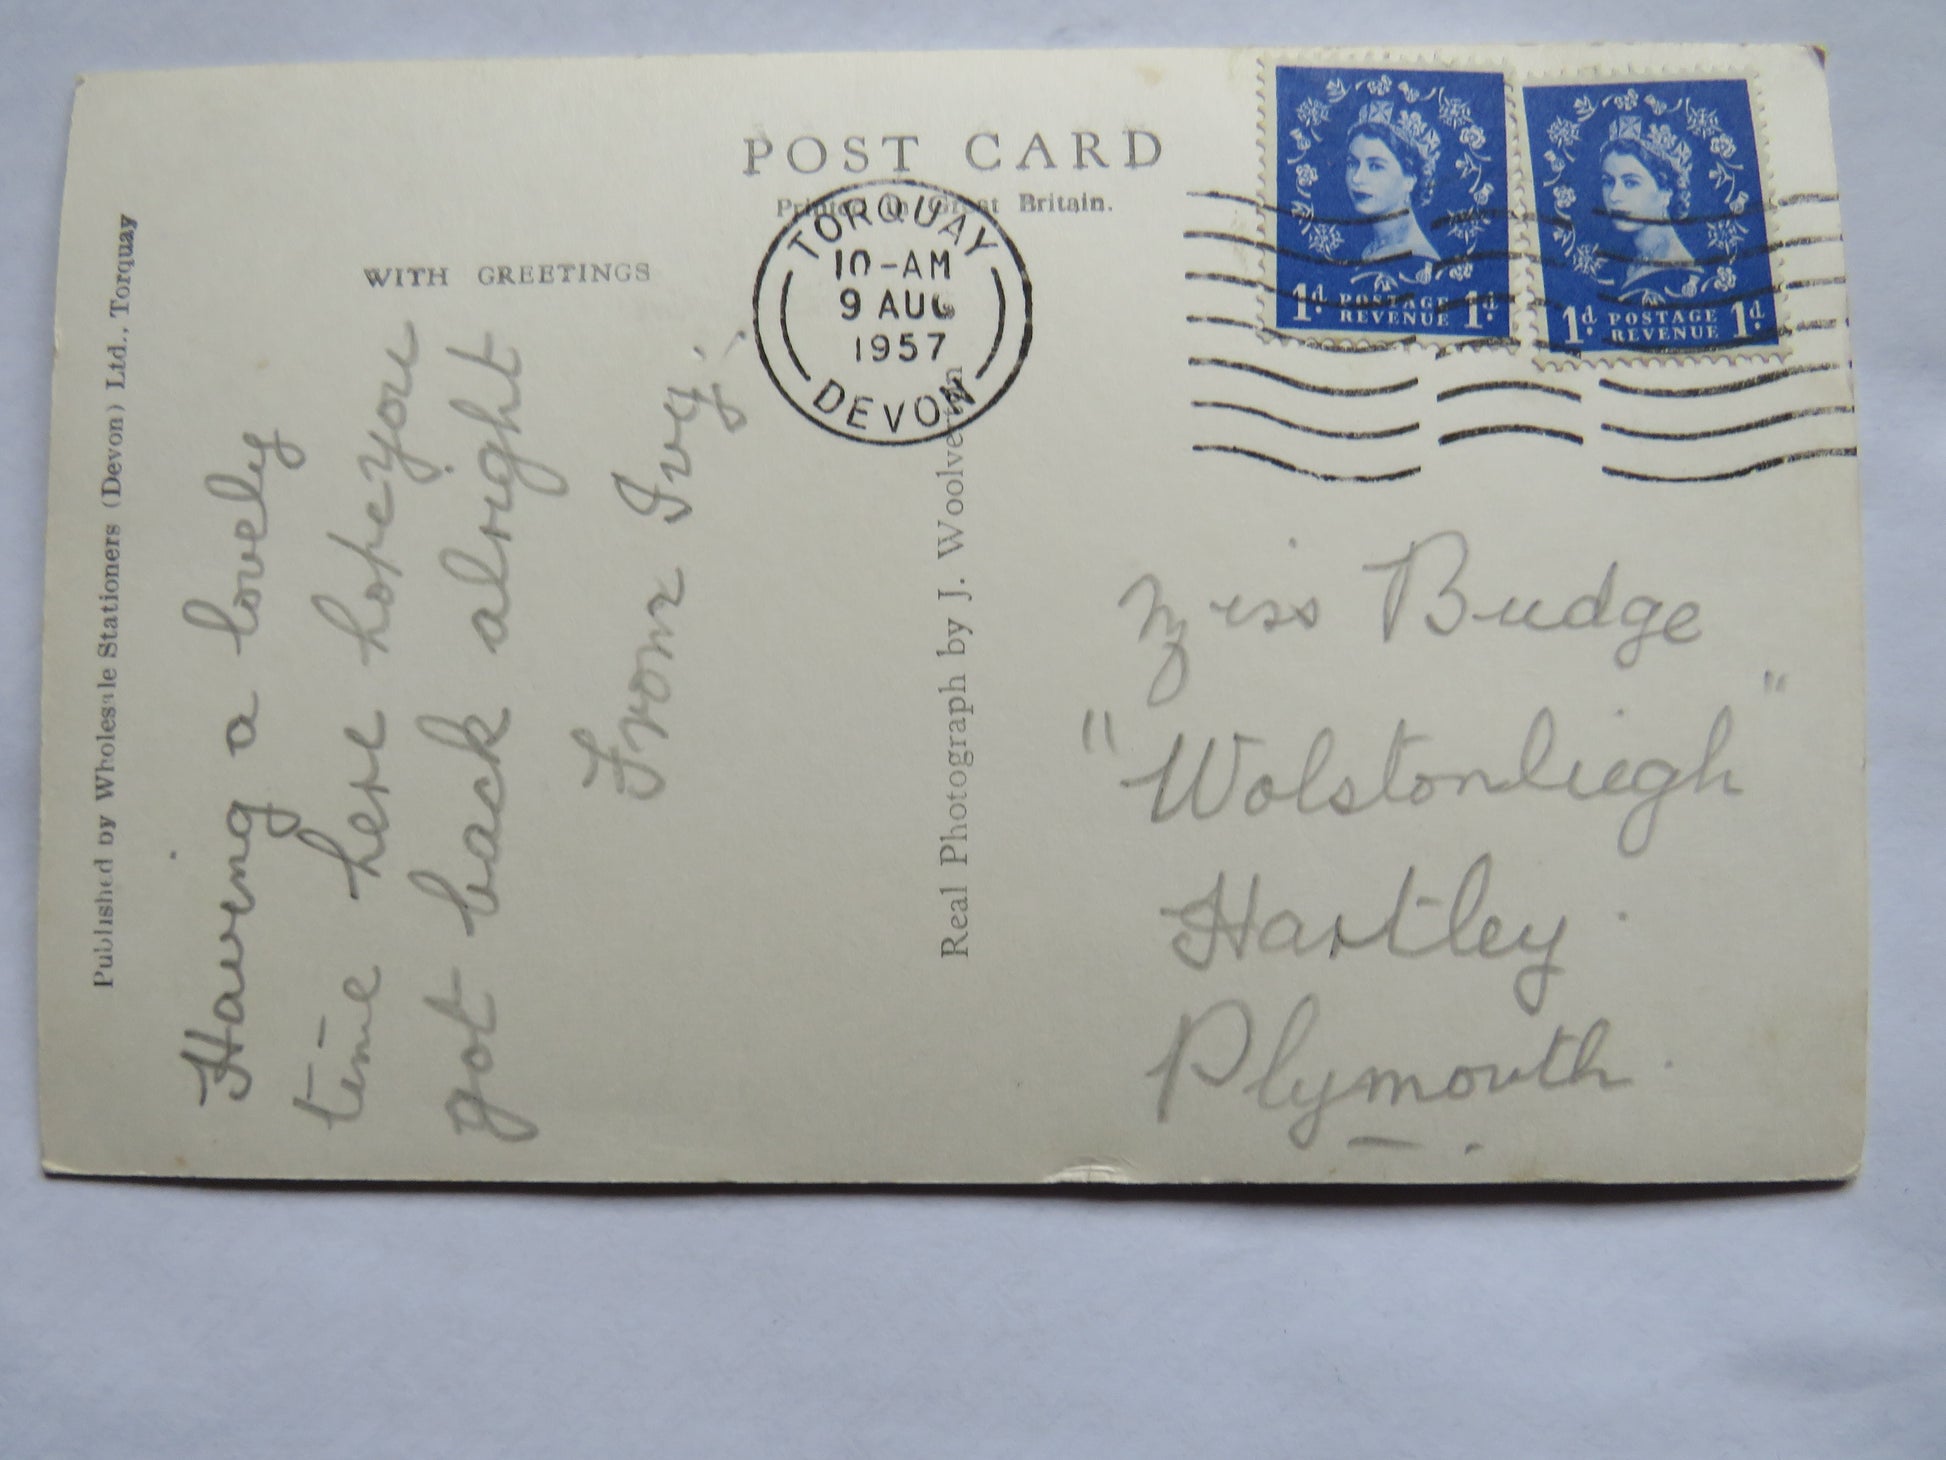 Published by Wholesale Stationers (Devon) Ltd., Torquay
POST CARD
Printed in Great Britain.
WITH GREETINGS
TORQUAY
10-AM
9 AUG
1957
DEVON
1d. POSTAGE REVENUE 1d.
1d. POSTAGE REVENUE 1d.
Having a lovely
time here hope you
got back alright
From Ivy.
Real Photograph by J. Woolverton
Miss Budge
"Wolstonliegh"
Hartley.
Plymouth.